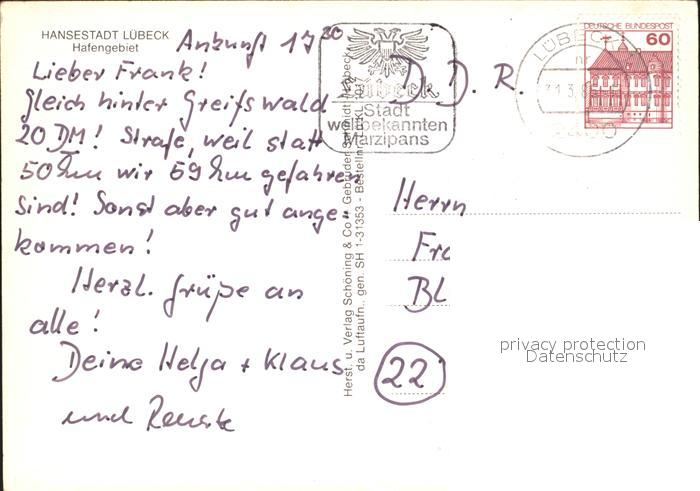 HANSESTADT LÜBECK
Hafengebiet
Ankunft 17 30
Lieber Frank!
gleich hinter Greifswald
20 DM! Strafe, weil statt
50 km wir 59 km gefahren
sind! Sonst aber gut ange-
kommen!
Herzl. Grüße an
alle!
Deine Helga + Klaus
und
Herst. u. Verlag Schöning & Co + Gebrüder Schmidt, Lübeck
da Luftaufn., gen. SH 1-31353 - Bestellnr.
Lübeck
Stadt
weltbekannten
Marzipans
DEUTSCHE BUNDESPOST
60
LÜBECK
D. D. R.
Herrn
Fra
BL
22
privacy protection
Datenschutz